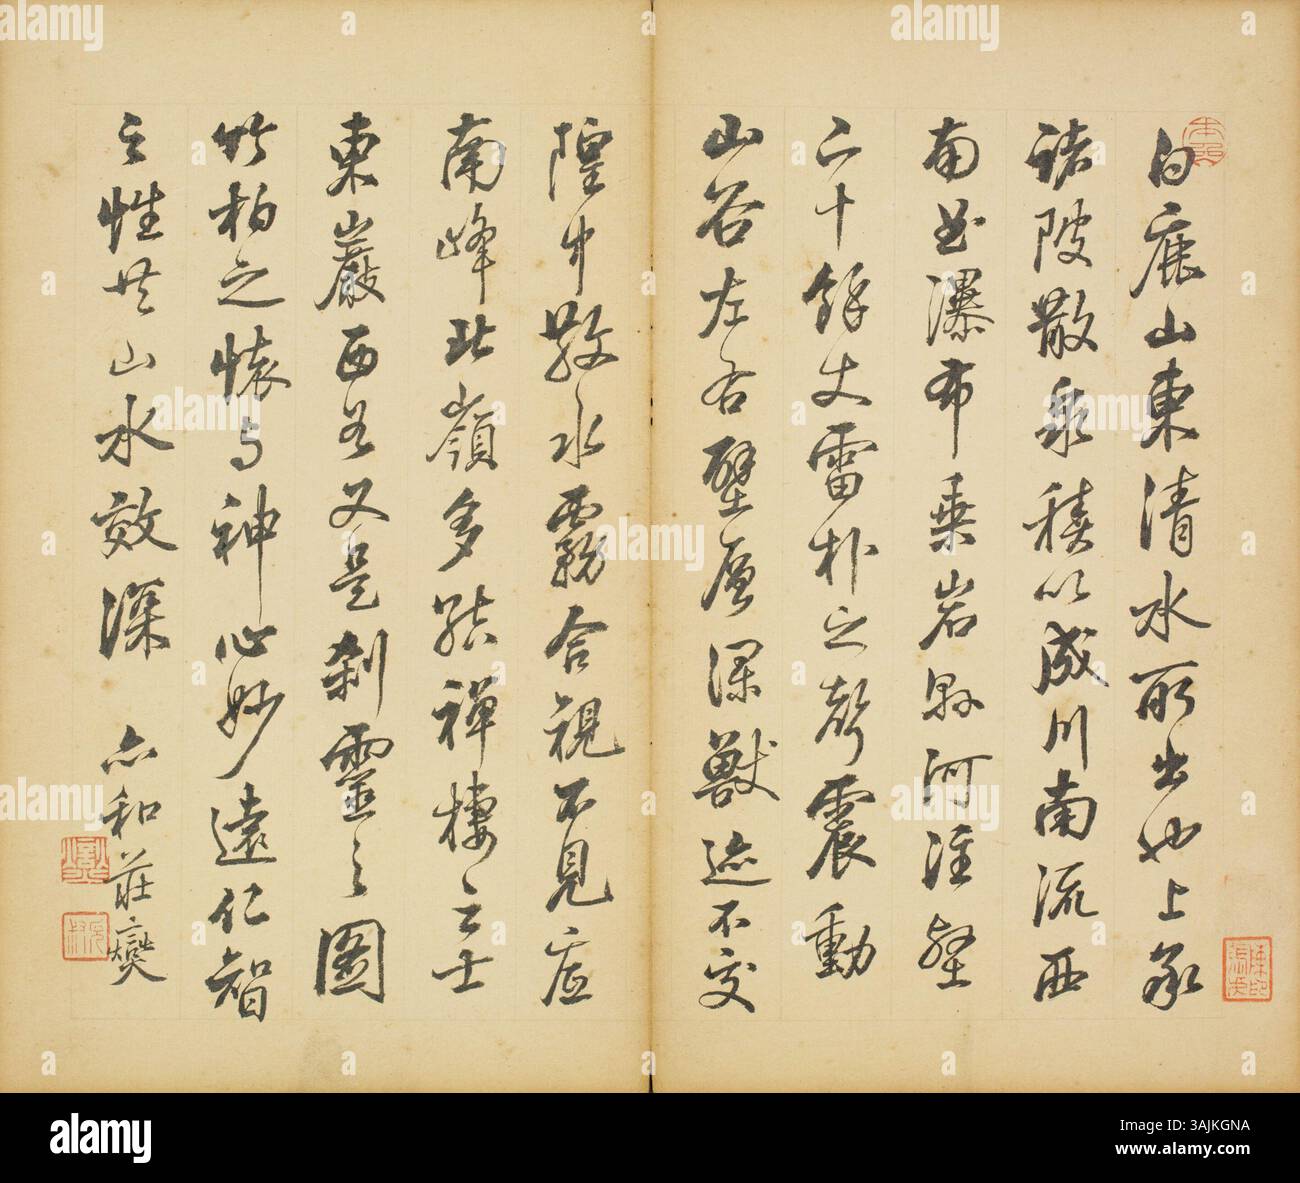 白鹿山東清水所出也上承
諸陂散泉積以成川南流西
南屈瀑布乗岩縣河注壑
二十餘丈雷朴之聲震動
山谷左右壁層深獸迹不交
隍中散水霧合視不見底
南峰北嶺多結禪棲之士
東巖西谷又是刹靈之圖
竹柏之懷与神心妙遠仁智
之性共山水效深 亦和莊爕
alamy
Image ID: 3AJKGNA
www.alamy.com